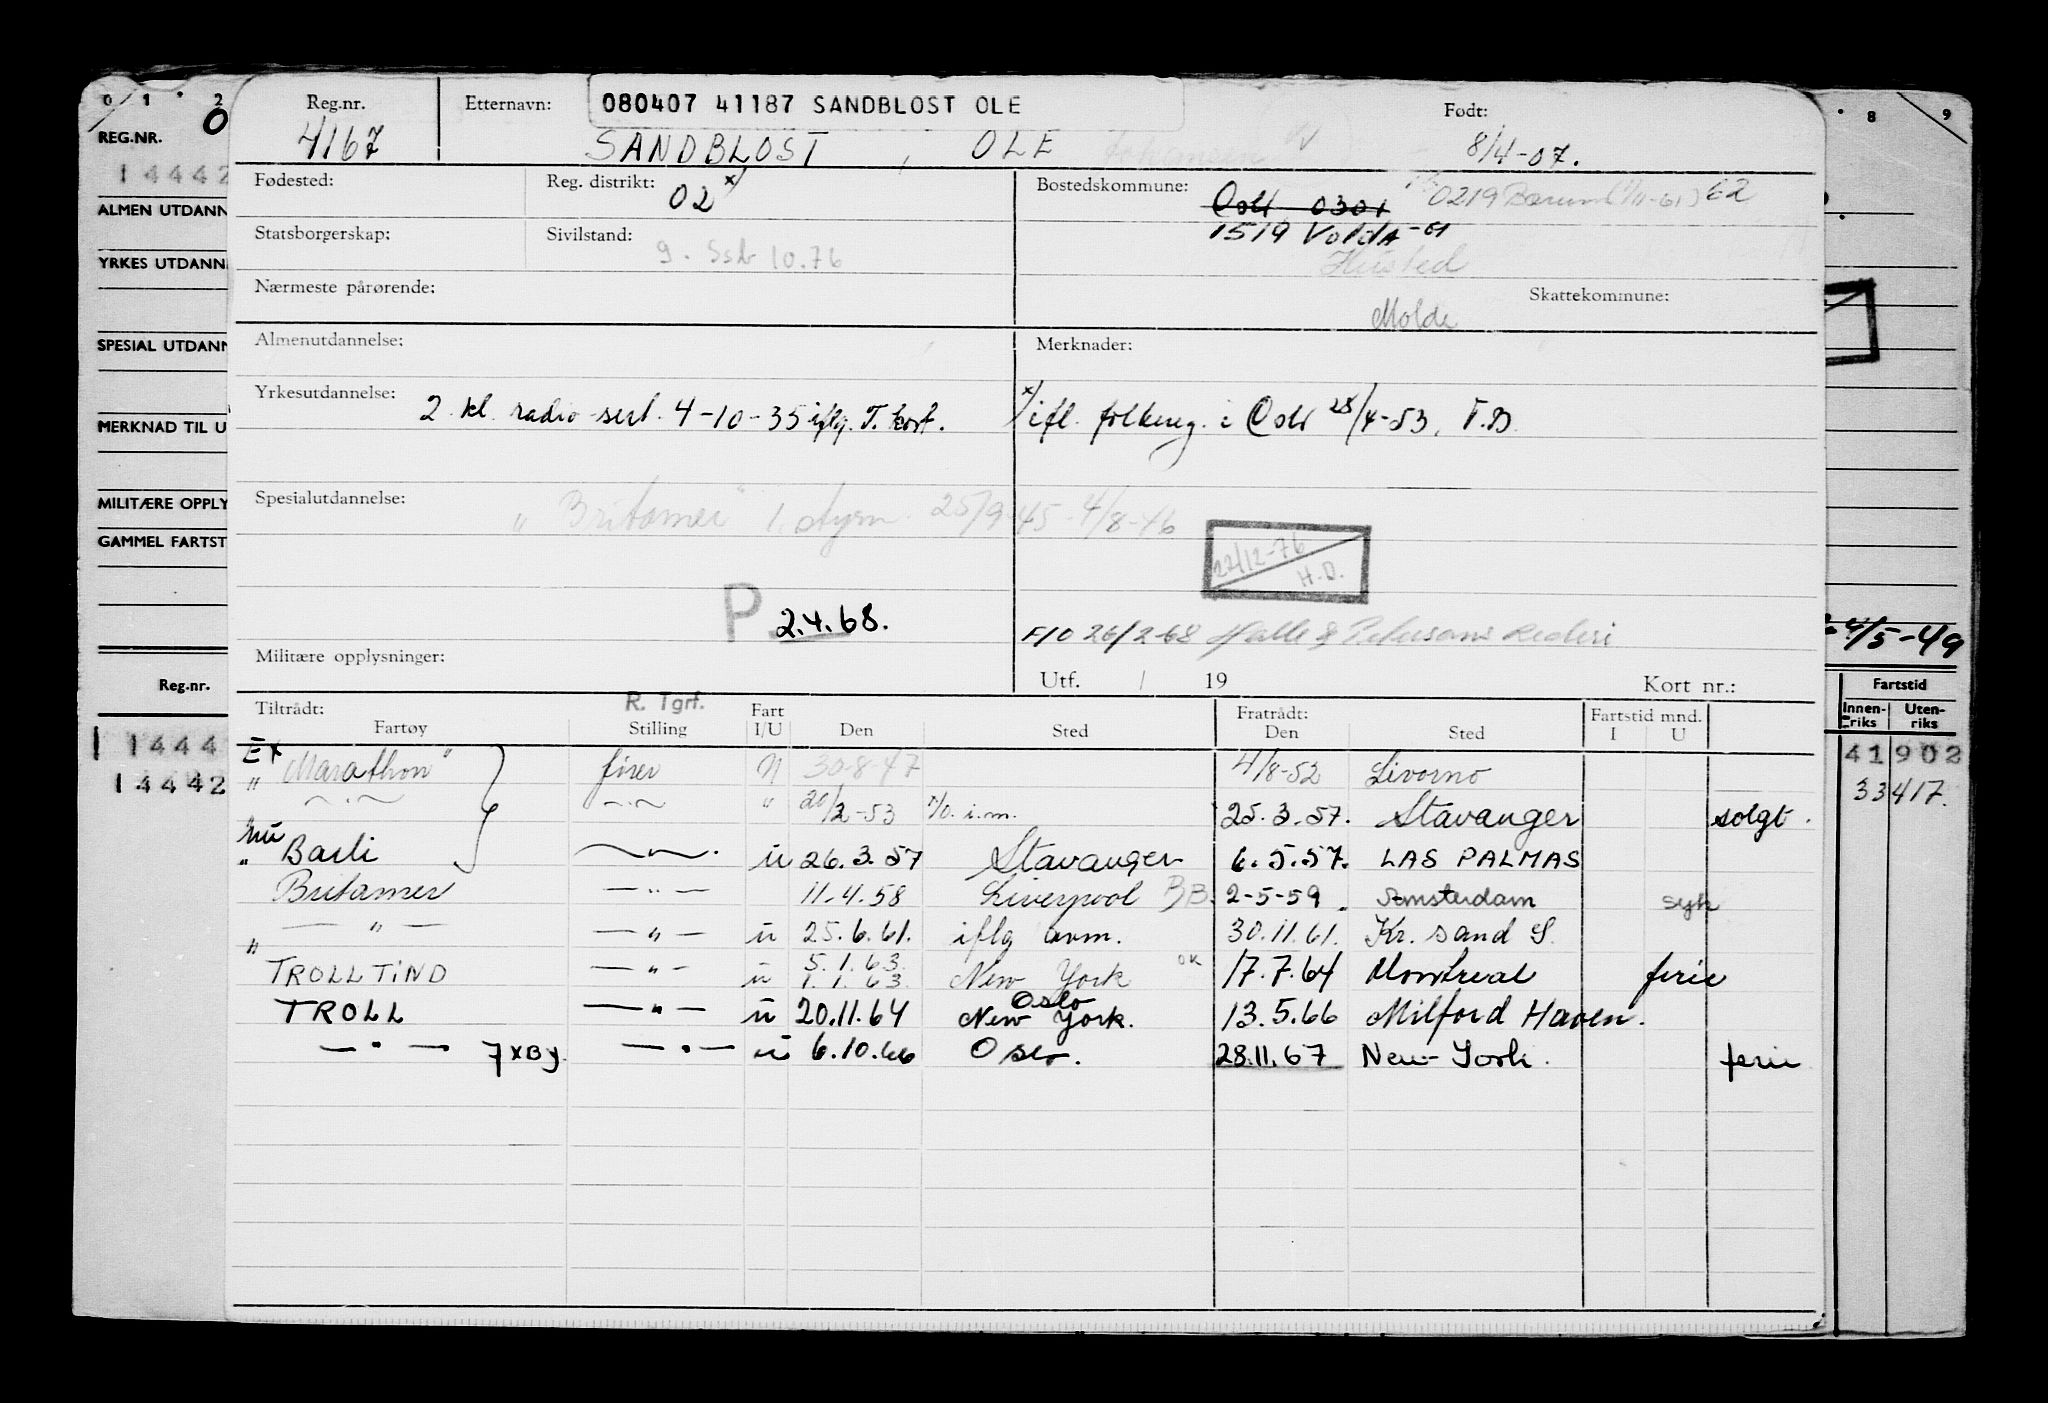 0 1 2
REG.NR. 0
14442
ALMEN UTDANN
YRKES UTDANN
SPESIAL UTDANN
MERKNAD TIL U
MILITÆRE OPPLY
GAMMEL FARTST
Reg.nr.
1444
14442
Reg.nr. Etternavn: 080407 41187 SANDBLOST OLE Født:
4167 SANDBLOST, OLE Johansen 8/4-07.
Fødested: Reg. distrikt: 02 x) Bostedskommune: Oslo 0301 0219 Bærum (1/11-61) 62
Statsborgerskap: Sivilstand: 1519 Volda
9. Ssb 10.76 Hustad
Nærmeste pårørende: Skattekommune:
Molde
Almenutdannelse: Merknader:
Yrkesutdannelse: 2 kl. radio sert. 4-10-35 iflg. T. kort. x) ifl. folkereg. i Oslo 28/4-53, T.B.
Spesialutdannelse: "Britamer" 1. styrm. 25/9 45-4/8-46
22/12-76
H.D.
P 2.4.68. F/O 26/2-68 Halle & Petersens Rederi
Militære opplysninger: Utf. / 19 Kort nr.:
Tiltrådt: R. Tgrf. Fart Fratrådt: Fartstid mnd.
Fartøy Stilling I/U Den Sted Den Sted I U
Ex "Marathon" fører U 30-8-47 4/8-52 Livorno
— " — — " — " 20/2-53 F/O. i.m. 25.3.57. Stavanger solgt.
nu " Basli — " —. U 26.3.57 Stavanger 6.5.57. LAS PALMAS
Britamer — " — 11.4.58 Liverpool BB. 2-5-59. Amsterdam syk
— " — — " — U 25.6.61. iflg avm. 30.11.61. Kr. sand S.
" TROLLTIND — " — U 5.1.63. 1.1.63. New York OK 17.7.64 Montreal ferie
TROLL — " — U 20.11.64 Oslo New York. 13.5.66 Milford Haven.
— " — 7XBY. — " — U 6.10.66 Oslo. 28.11.67 New York. ferie
8 9
4/5-49
Fartstid
Innenriks Utenriks
41902
33417.